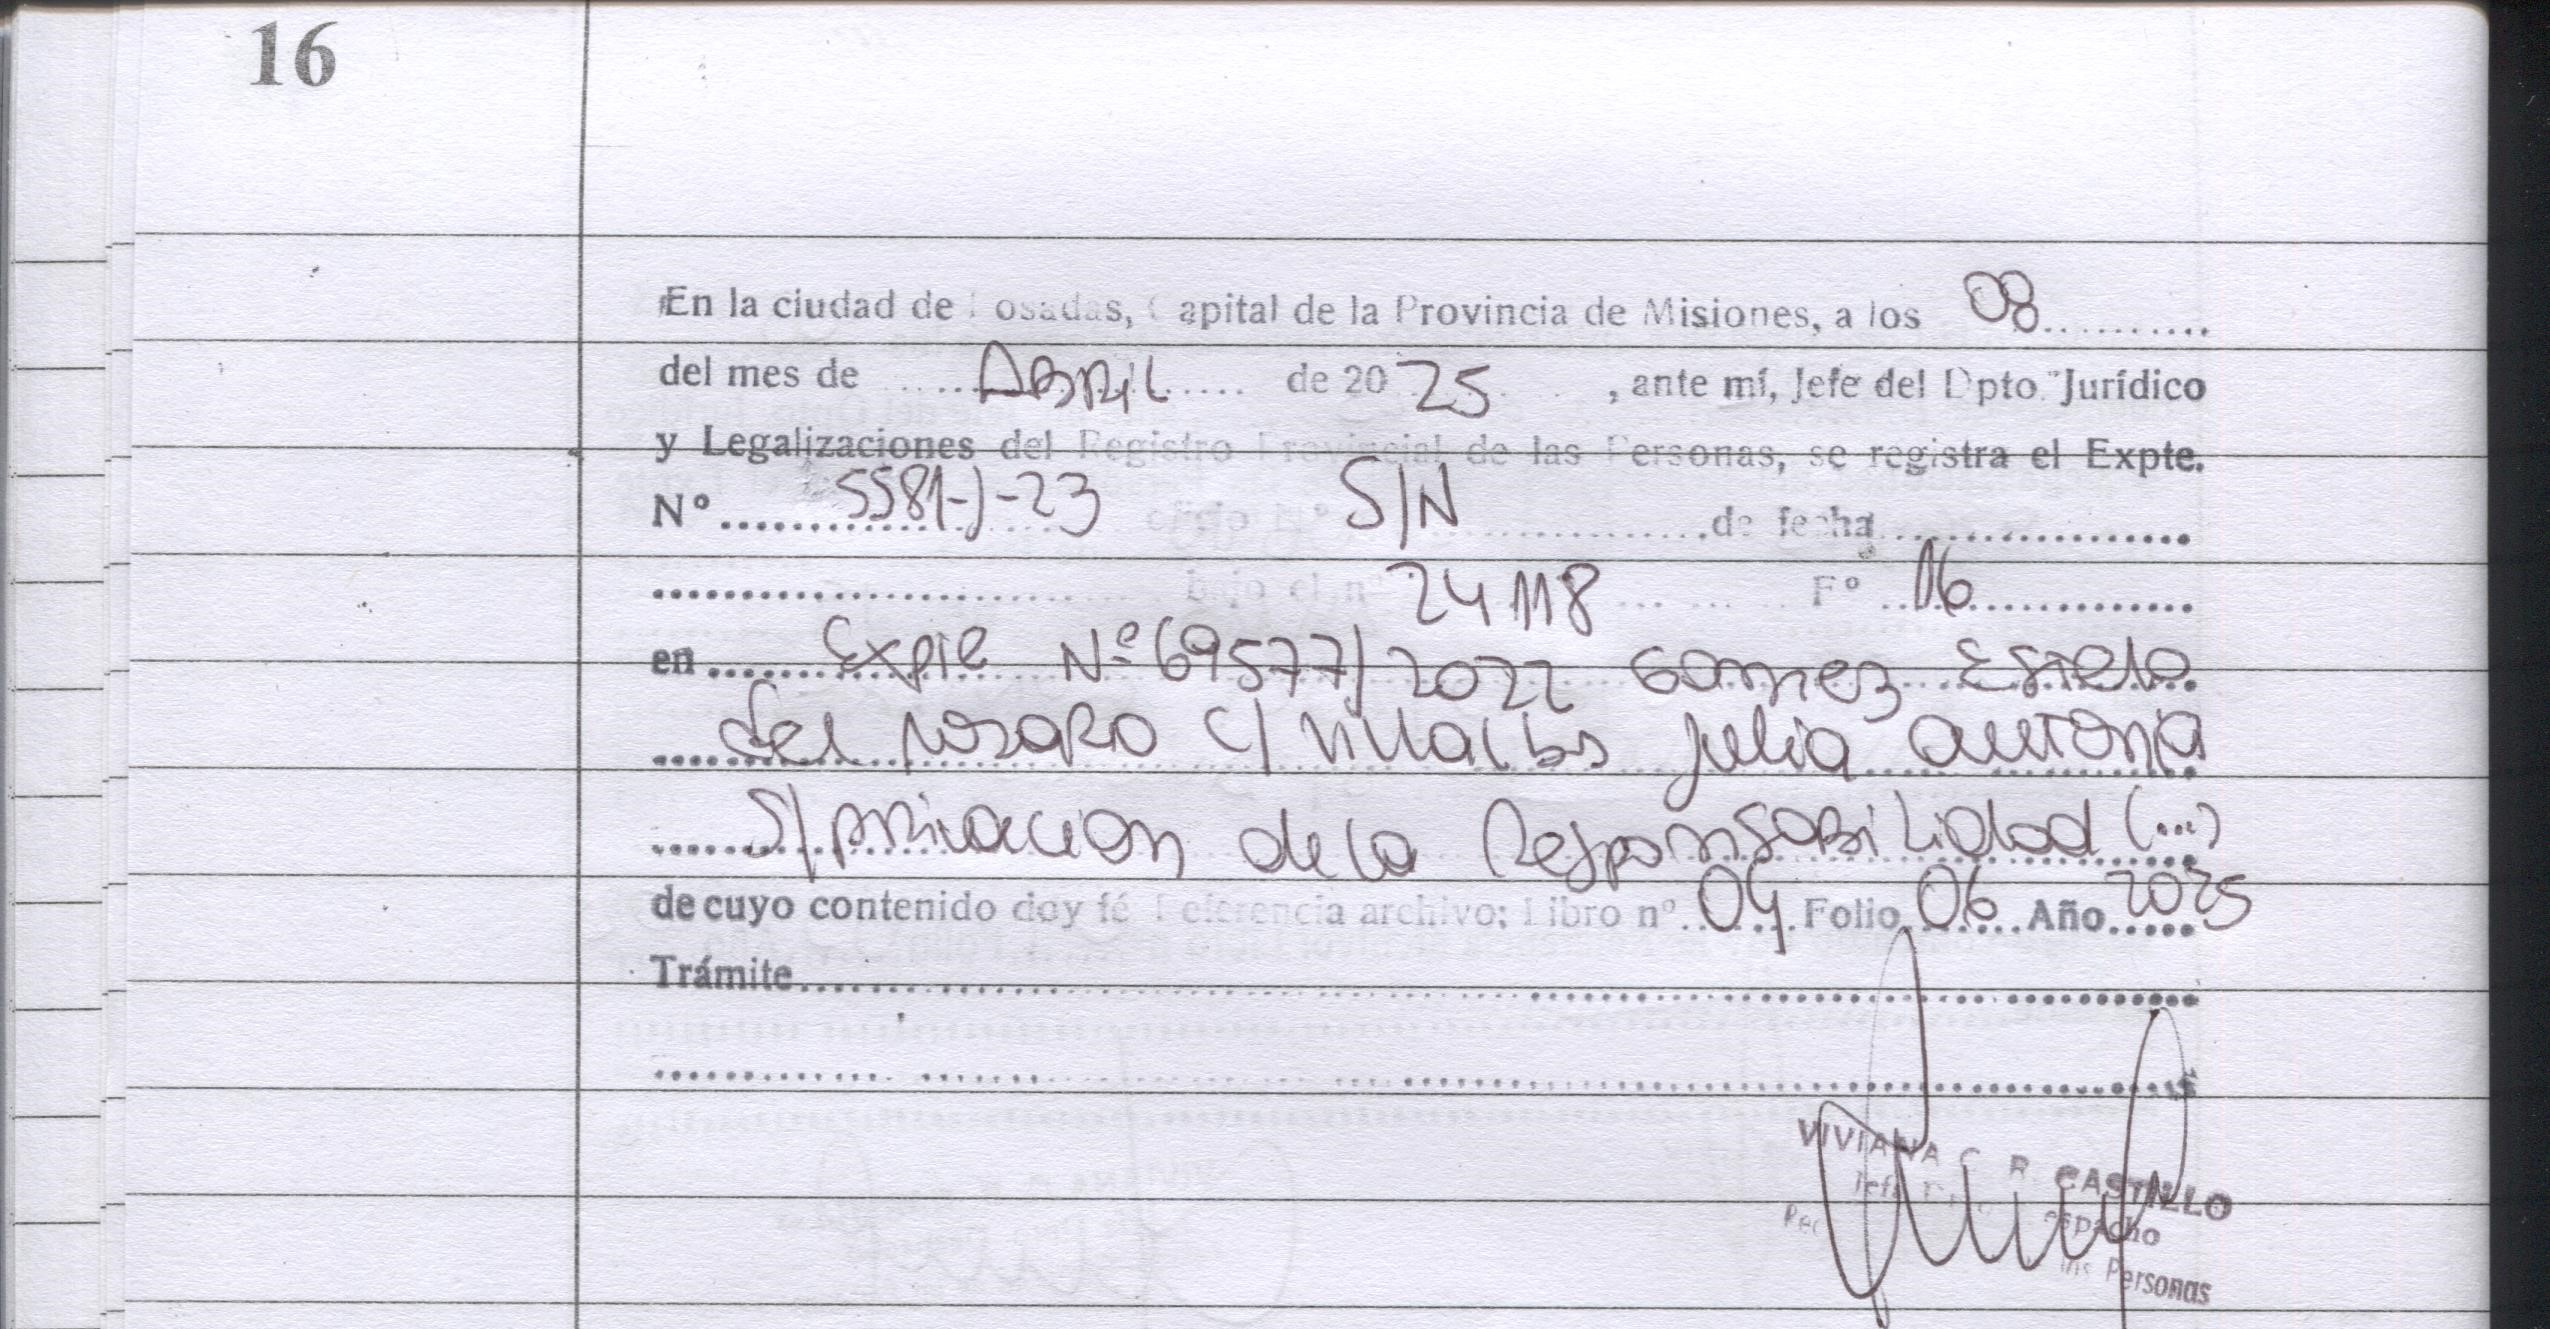 16
En la ciudad de Posadas, Capital de la Provincia de Misiones, a los 08
del mes de ABRIL de 2025, ante mí, Jefe del Dpto. Jurídico
y Legalizaciones del Registro Provincial de las Personas, se registra el Expte.
Nº 5581-J-23 oficio Nº S/N de fecha
bajo el nº 24118 Fº 16
en Expte Nº 69577/2022 Gomez Estela
del rosario c/ villalba julia antonia
S/ privacion de la Responsabilidad (...)
de cuyo contenido doy fé Referencia archivo: Libro nº 04 Folio 06 Año 2025
Trámite
VIVIANA C. R. CASTILLO
Despacho
las Personas